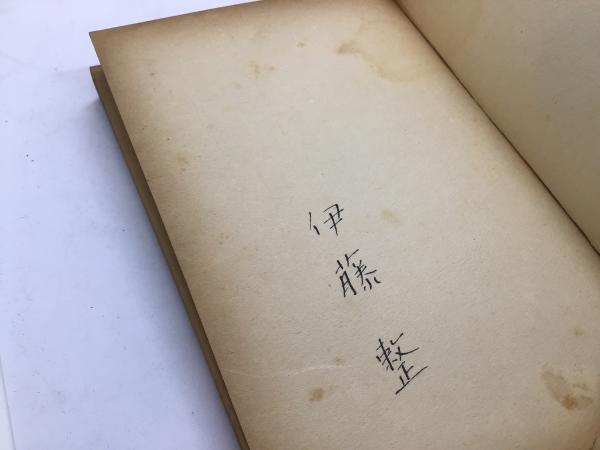 伊藤整